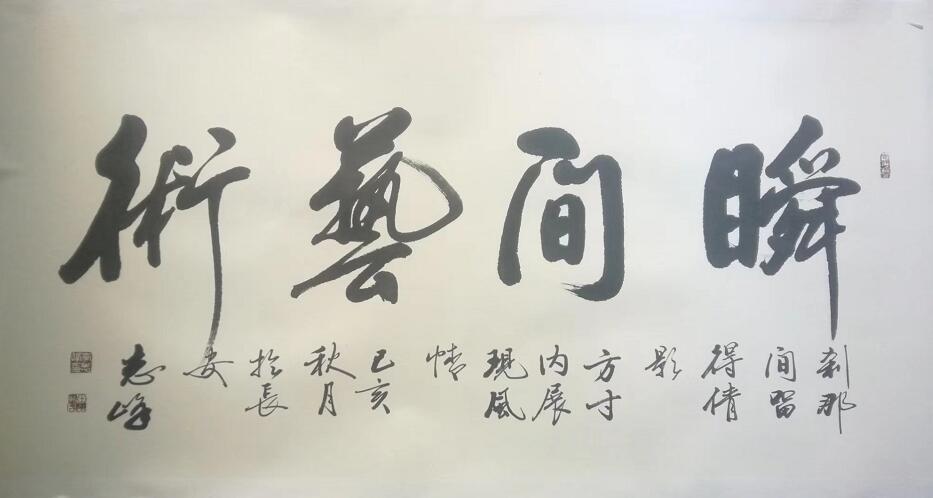 瞬间藝術
刹那
间留
得倩
影
方寸
内展
現風
情
己亥
秋月
於長
安
志峰